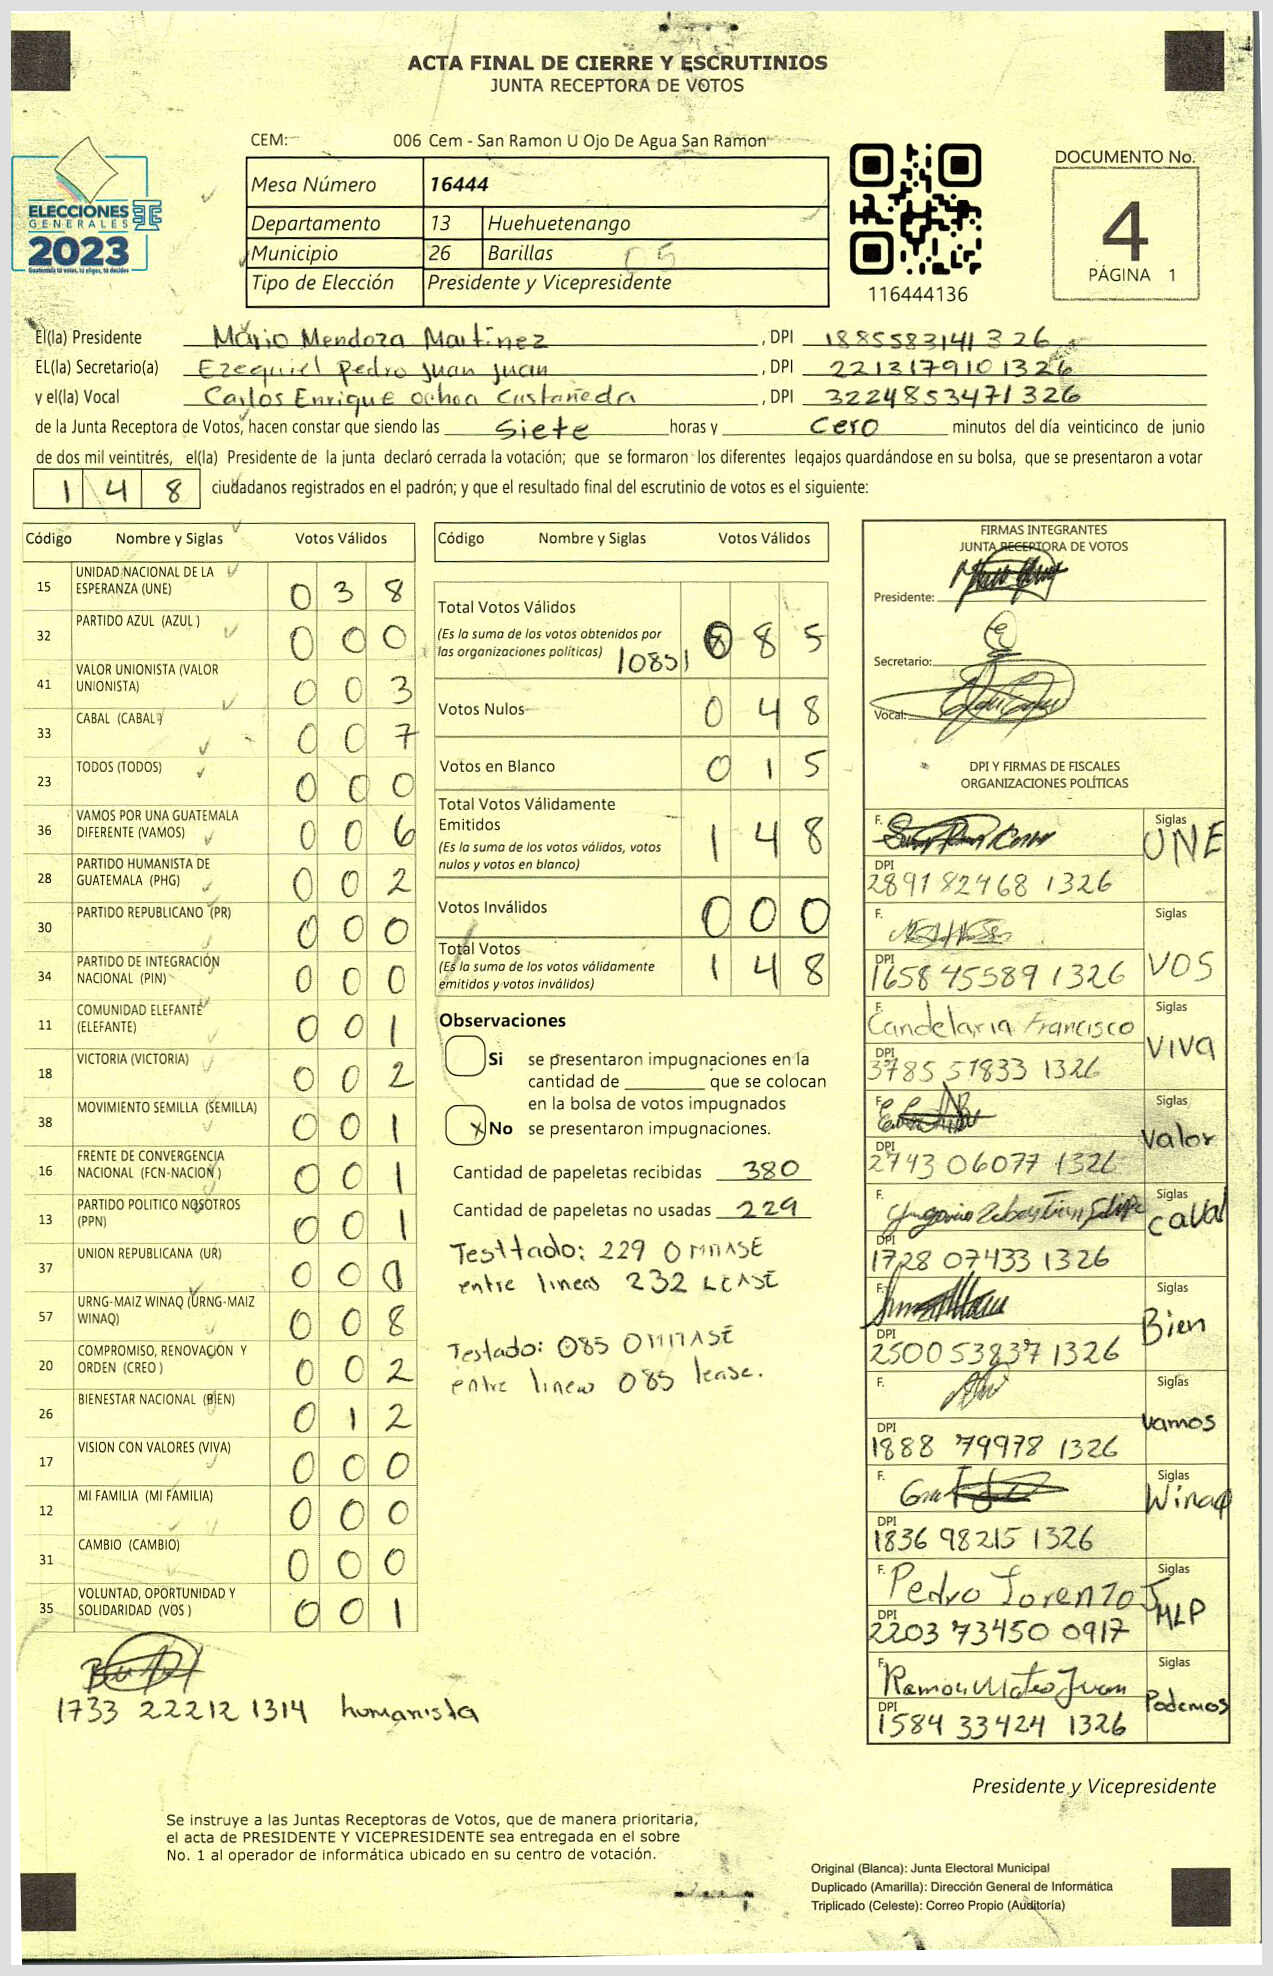 ACTA FINAL DE CIERRE Y ESCRUTINIOS
JUNTA RECEPTORA DE VOTOS
CEM: 006 Cem - San Ramon U Ojo De Agua San Ramon
Mesa Número 16444
Departamento 13 Huehuetenango
Municipio 26 Barillas 05
Tipo de Elección Presidente y Vicepresidente
ELECCIONES
GENERALES
2023
Guatemala tú votas, tú eliges, tú decides
116444136
DOCUMENTO No.
4
PÁGINA 1
El(la) Presidente Mario Mendoza Martinez , DPI 1885583141326
EL(la) Secretario(a) Ezequiel Pedro Juan Juan , DPI 2213179101326
y el(la) Vocal Carlos Enrique Ochoa Castañeda , DPI 3224853471326
de la Junta Receptora de Votos, hacen constar que siendo las Siete horas y Cero minutos del día veinticinco de junio
de dos mil veintitrés, el(la) Presidente de la junta declaró cerrada la votación; que se formaron los diferentes legajos quardándose en su bolsa, que se presentaron a votar
148 ciudadanos registrados en el padrón; y que el resultado final del escrutinio de votos es el siguiente:
Código Nombre y Siglas Votos Válidos
15 UNIDAD NACIONAL DE LA ESPERANZA (UNE) 038
32 PARTIDO AZUL (AZUL ) 000
41 VALOR UNIONISTA (VALOR UNIONISTA) 003
33 CABAL (CABAL) 007
23 TODOS (TODOS) 000
36 VAMOS POR UNA GUATEMALA DIFERENTE (VAMOS) 006
28 PARTIDO HUMANISTA DE GUATEMALA (PHG) 002
30 PARTIDO REPUBLICANO (PR) 000
34 PARTIDO DE INTEGRACIÓN NACIONAL (PIN) 000
11 COMUNIDAD ELEFANTE (ELEFANTE) 001
18 VICTORIA (VICTORIA) 002
38 MOVIMIENTO SEMILLA (SEMILLA) 001
16 FRENTE DE CONVERGENCIA NACIONAL (FCN-NACION) 001
13 PARTIDO POLITICO NOSOTROS (PPN) 001
37 UNION REPUBLICANA (UR) 00
57 URNG-MAIZ WINAQ (URNG-MAIZ WINAQ) 008
20 COMPROMISO, RENOVACION Y ORDEN (CREO ) 002
26 BIENESTAR NACIONAL (BIEN) 012
17 VISION CON VALORES (VIVA) 000
12 MI FAMILIA (MI FAMILIA) 000
31 CAMBIO (CAMBIO) 000
35 VOLUNTAD, OPORTUNIDAD Y SOLIDARIDAD (VOS ) 001
1733 22212 1314 humanista
Código Nombre y Siglas Votos Válidos
Total Votos Válidos
(Es la suma de los votos obtenidos por
las organizaciones políticas) 085 85
Votos Nulos 048
Votos en Blanco 015
Total Votos Válidamente
Emitidos 148
(Es la suma de los votos válidos, votos
nulos y votos en blanco)
Votos Inválidos 000
Total Votos 148
(Es la suma de los votos válidamente
emitidos y votos inválidos)
Observaciones
Si se presentaron impugnaciones en la
cantidad de ________ que se colocan
en la bolsa de votos impugnados
x No se presentaron impugnaciones.
Cantidad de papeletas recibidas 380
Cantidad de papeletas no usadas 229
Testtado: 229 OMITASE
entre lineas 232 LEASE
Testado: 085 OMITASE
entre lineas 085 lease.
FIRMAS INTEGRANTES
JUNTA RECEPTORA DE VOTOS
Presidente:
Secretario:
Vocal:
DPI Y FIRMAS DE FISCALES
ORGANIZACIONES POLÍTICAS
F. Siglas UNE
DPI 2891 82468 1326
F. Siglas VOS
DPI 1658 45589 1326
F. Candelaria Francisco Siglas VIVA
DPI 3785 51833 1326
F. Siglas Valor
DPI 2743 06077 1326
F. Siglas CaVal
DPI 1728 07433 1326
F. Siglas Bien
DPI 2500 53837 1326
F. Siglas Vamos
DPI 1888 79978 1326
F. Siglas Winaq
DPI 1836 98215 1326
F. Pedro Lorenzo J Siglas MLP
DPI 2203 73450 0917
F. Ramon Mateo Juan Siglas Podemos
DPI 1584 33424 1326
Presidente y Vicepresidente
Se instruye a las Juntas Receptoras de Votos, que de manera prioritaria,
el acta de PRESIDENTE Y VICEPRESIDENTE sea entregada en el sobre
No. 1 al operador de informática ubicado en su centro de votación.
Original (Blanca): Junta Electoral Municipal
Duplicado (Amarilla): Dirección General de Informática
Triplicado (Celeste): Correo Propio (Auditoría)